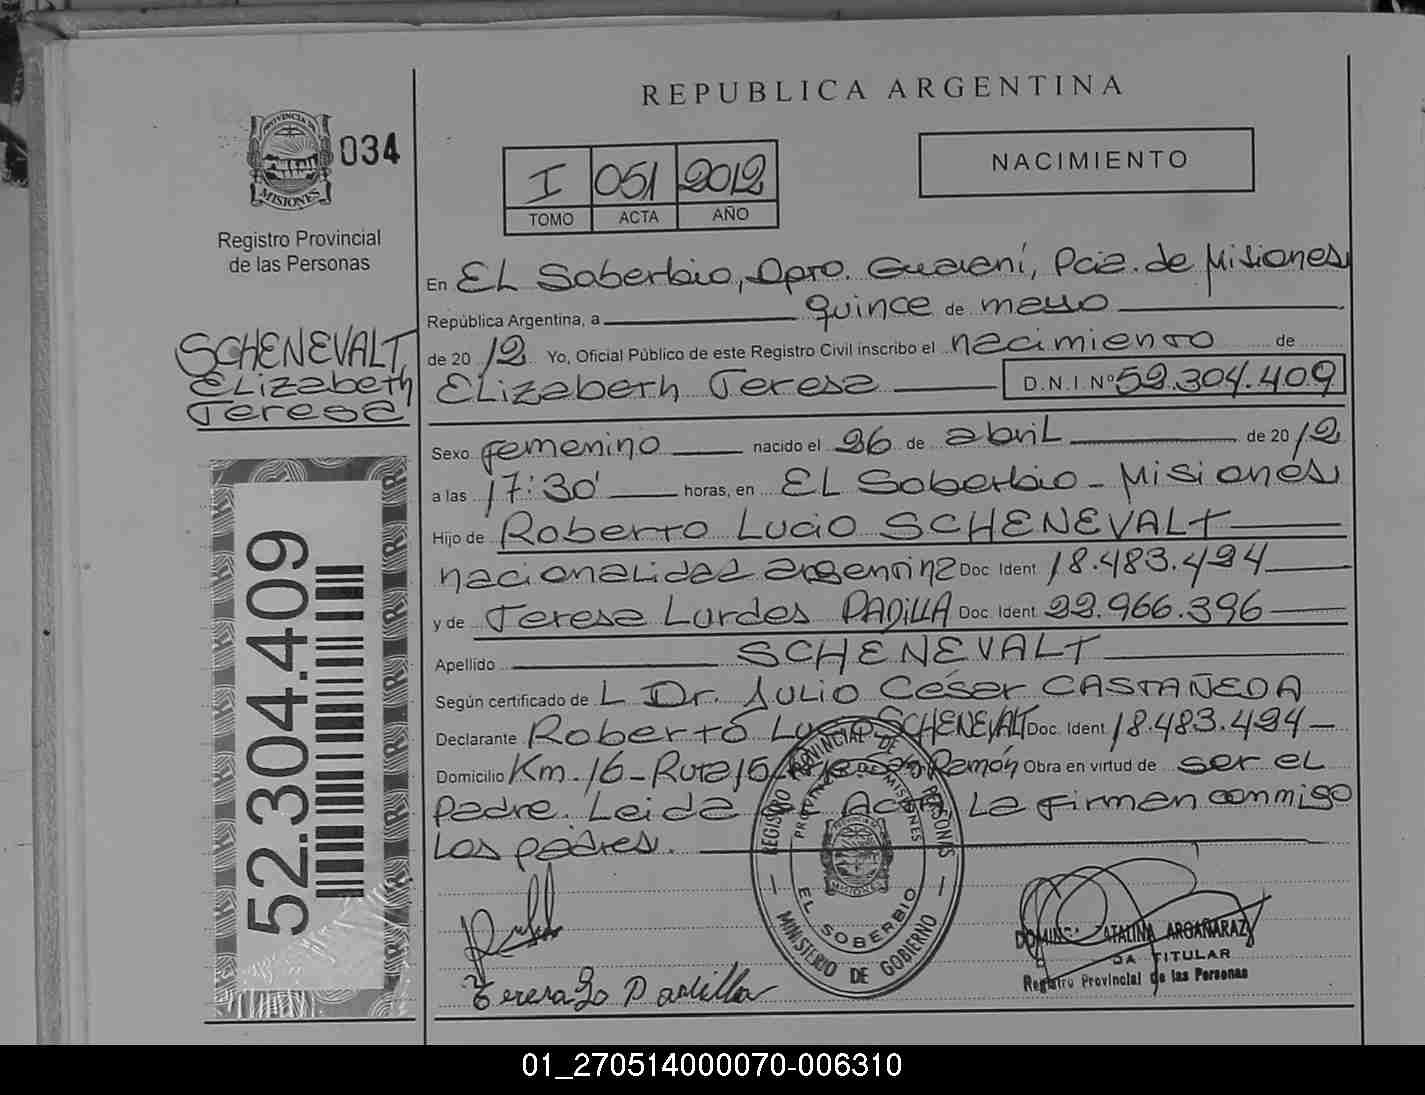 REPUBLICA ARGENTINA
PROVINCIA DE
MISIONES
034
Registro Provincial
de las Personas
I 051 2012
TOMO ACTA AÑO
NACIMIENTO
SCHENEVALT
Elizabeth
Teresa
52.304.409
En EL Soberbio, Dpto. Guaraní, Pcia. de Misiones
República Argentina, a quince de mayo
de 2012 Yo, Oficial Público de este Registro Civil inscribo el nacimiento de
Elizabeth Teresa D.N.I. Nº 52.304.409
Sexo femenino nacido el 26 de abril de 2012
a las 17:30' horas, en EL Soberbio - Misiones
Hijo de Roberto Lucio SCHENEVALT
nacionalidad argentina Doc. Ident. 18.483.494
y de Teresa Lurdes PADILLA Doc. Ident. 22.966.396
Apellido SCHENEVALT
Según certificado de L Dr. Julio César CASTAÑEDA
Declarante Roberto Lucio SCHENEVALT Doc. Ident. 18.483.494
Domicilio Km. 16 - Ruta 15 San Ramón Obra en virtud de ser el
padre. Leida Acta La firman conmigo
los padres.
REGISTRO PROVINCIAL DE LAS PERSONAS
PROVINCIA DE MISIONES
EL SOBERBIO
MINISTERIO DE GOBIERNO
Teresa Lo Padilla
CATALINA ARGAÑARAZ
TITULAR
Registro Provincial de las Personas
01_270514000070-006310